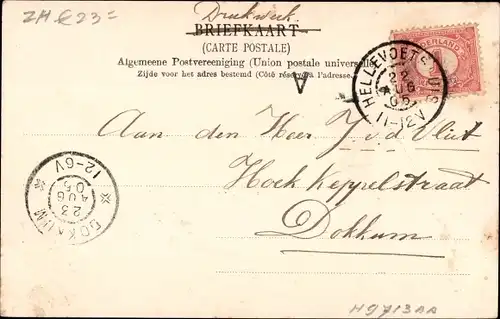 ZH € 23=
Drukwerk
BRIEFKAART
(CARTE POSTALE)
Algemeene Postvereeniging (Union postale universelle)
Zijde voor het adres bestemd (Côté réservé à l'adresse
NEDERLAND
HELLEVOETSLUIS
22
AUG
11-12V
A
Aan den Heer J. v d Vliet
Hoek Keppelstraat
Dokkum
DOKKUM
23
AUG
05
12-6V
H9713AA